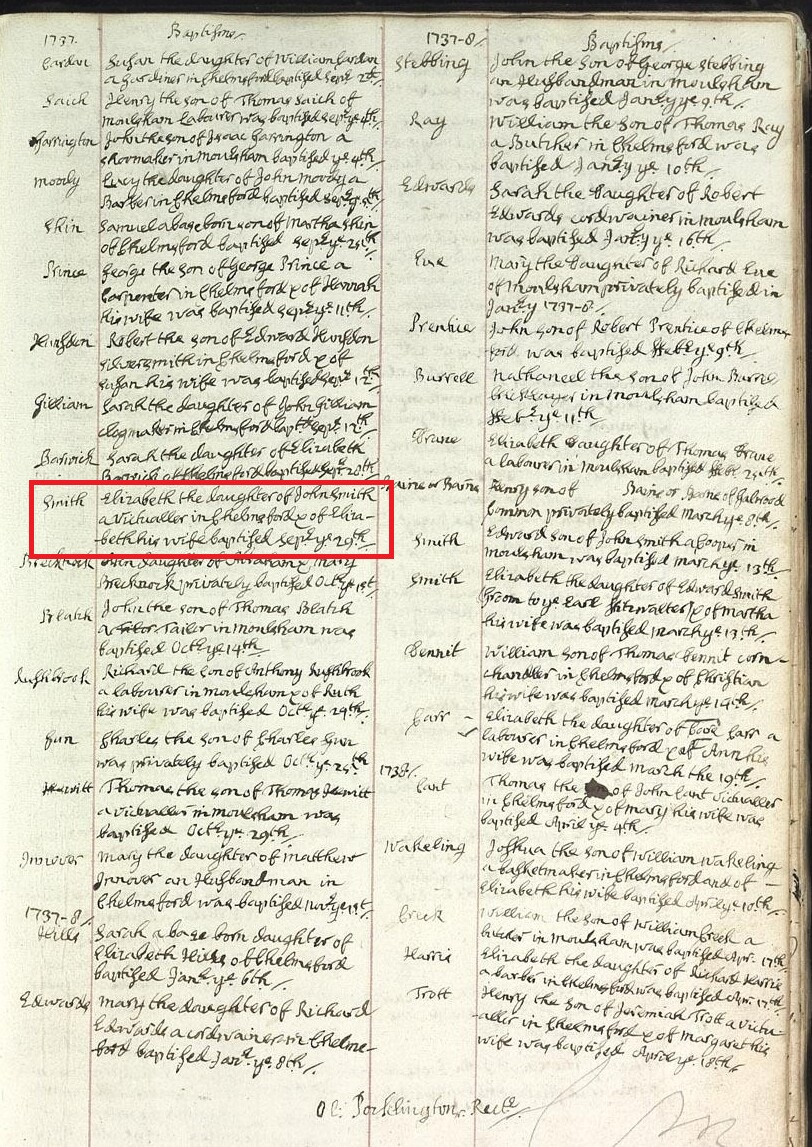 1737. Baptisms
Cardon Susan the daughter of William Cardon
a Gardiner in Chelmsford baptised Sept. 2d.
Saich Henry the son of Thomas Saich of
moulsham Labourer was baptised Sept. ye 4th
Harrington John the son of Isaac Harrington a
shoemaker in Moulsham baptised ye 4th
Moody Lucy the daughter of John Moody a
Barber in Chelmsford baptised Sept.
Skin Samuel a base born son of Martha Skin
of Chelmsford baptised Sept. ye 25th
Prince George the son of George Prince a
Carpenter in Chelmsford & of Hannah
his wife was baptised Sept. ye 11th
Robert the son of Edward
silversmith in Chelmsford & of
Susan his wife was baptised Sept. 12th
Gilliam Sarah the daughter of John Gilliam
clogmaker in Chelmsford bapt. Sept. 12th
Barwick Sarah the daughter of Elizabeth
Barwick of Chelmsford baptised Sep. 20th
Smith Elizabeth the daughter of John Smith
a Victualler in Chelmsford & of Eliza-
beth his wife baptised Sep. ye 29th
Brecknock daughter of Abraham & Mary
Brecknock privately baptised Oct. ye 1st
Blatch John the son of Thomas Blatch
a Tailer in moulsham was
baptised Oct. ye 14th
Rushbrook Richard the son of Anthony Rushbrook
a labourer in moulsham & of Ruth
his wife was baptised Oct. ye 29th
Gun Charles the son of Charles Gun
was privately baptised Oct. ye 25th
Hewitt Thomas the son of Thomas Hewitt
a victualler in moulsham was
baptised Oct. ye 29th
Innover Mary the daughter of matthew
Innover an Husbandman in
Chelmsford was baptised Nov. ye 1st
1737-8
Hills Sarah a base born daughter of
Elizabeth Hills of Chelmsford
baptised Jan. ye 6th
Edwards Mary the daughter of Richard
Edwards a cordwainer in Chelms-
ford baptised Jan. ye 8th
1737-8 Baptisms
Stebbing John the son of George Stebbing
an Husbandman in moulsham
was baptised Jan.y ye 9th
Ray William the son of Thomas Ray
a Butcher in Chelmsford was
baptised Jan.y ye 10th
Edwards Sarah the Daughter of Robert
Edwards cordwainer in moulsham
was baptised Jan.y ye 16th
Eve Mary the Daughter of Richard Eve
of moulsham privately baptised in
Jan.y 1737-8
Prentice John son of Robert Prentice of Chelms
ford was baptised Feb. ye 9th
Burrell Nathaneel the son of John Burrel
bricklayer in moulsham baptised
Feb. ye 11th
Elizabeth Daughter of Thomas
a labourer in moulsham baptised Feb. 25th
Henry son of
common privately baptised march ye 8th
Smith Edward son of John Smith a Cooper in
moulsham was baptised march ye 13th
Smith Elizabeth the daughter of Edward Smith
Groom to ye Earl Fitzwalter & of martha
his wife was baptised march ye 13th
Bennit William son of Thomas Bennit corn-
chandler in Chelmsford & of Christian
his wife was baptised march ye 19th
Carr Elizabeth the daughter of Carr a
labourer in Chelmsford & of Ann his
wife was baptised march the 19th
1738
Cant Thomas the of John Cant Victualler
in Chelmsford & of mary his wife was
baptised April ye 4th
Wakeling Joshua the son of William Wakeling
a basketmaker in Chelmsford and of
Elizabeth his wife baptised April ye 10th
Creek William the son of William Creek a
butcher in Moulsham was baptised Apr. 17th
Harris Elizabeth the daughter of Richard Harris
a barber in Chelmsford was baptised Apr. 17th
Trott Henry the son of Jeremiah Trott a victu-
aller in Chelmsford & of margaret his
wife was baptised April ye 18th
Ol: Pocklington Rect.